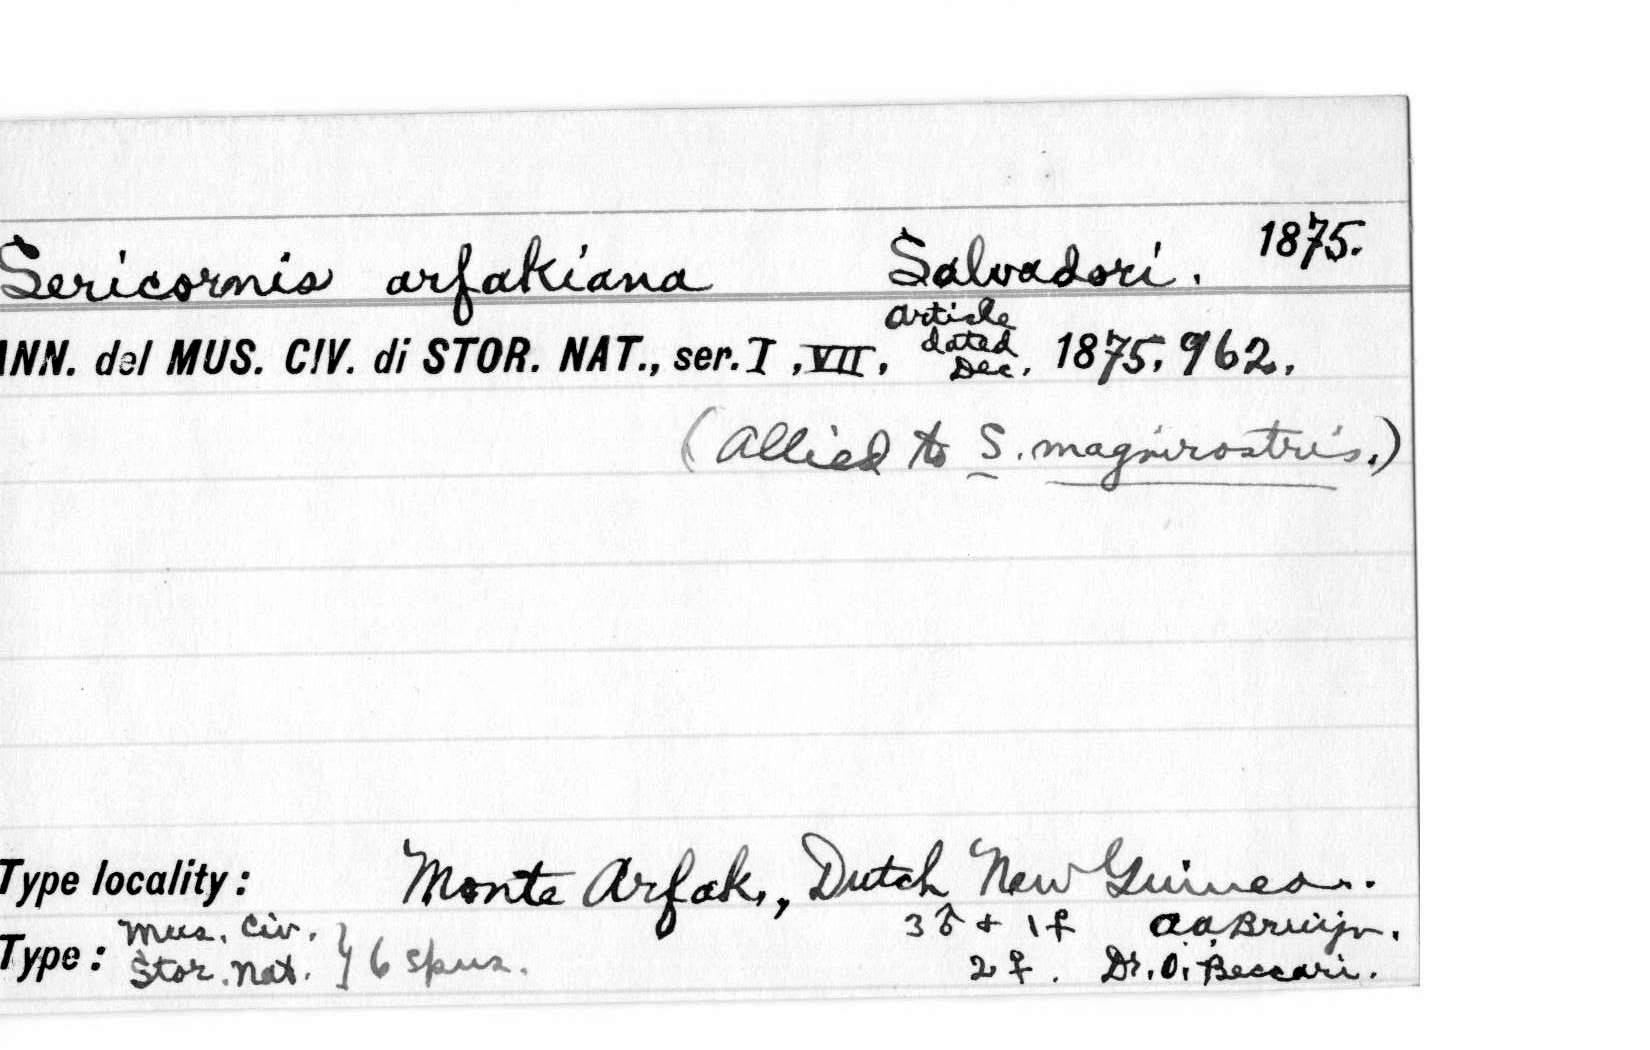 Sericornis arfakiana Salvadori. 1875.
ANN. del MUS. CIV. di STOR. NAT., ser. I, VII, article dated Dec. 1875, 962.
(Allied to S. magnirostris.)
Type locality: Monte Arfak., Dutch New Guinea.
Type: Mus. Civ. Stor. Nat. } 6 spns.
3 ♂ + 1 ♀ A.A. Bruijn.
2 ♀. Dr. O. Beccari.